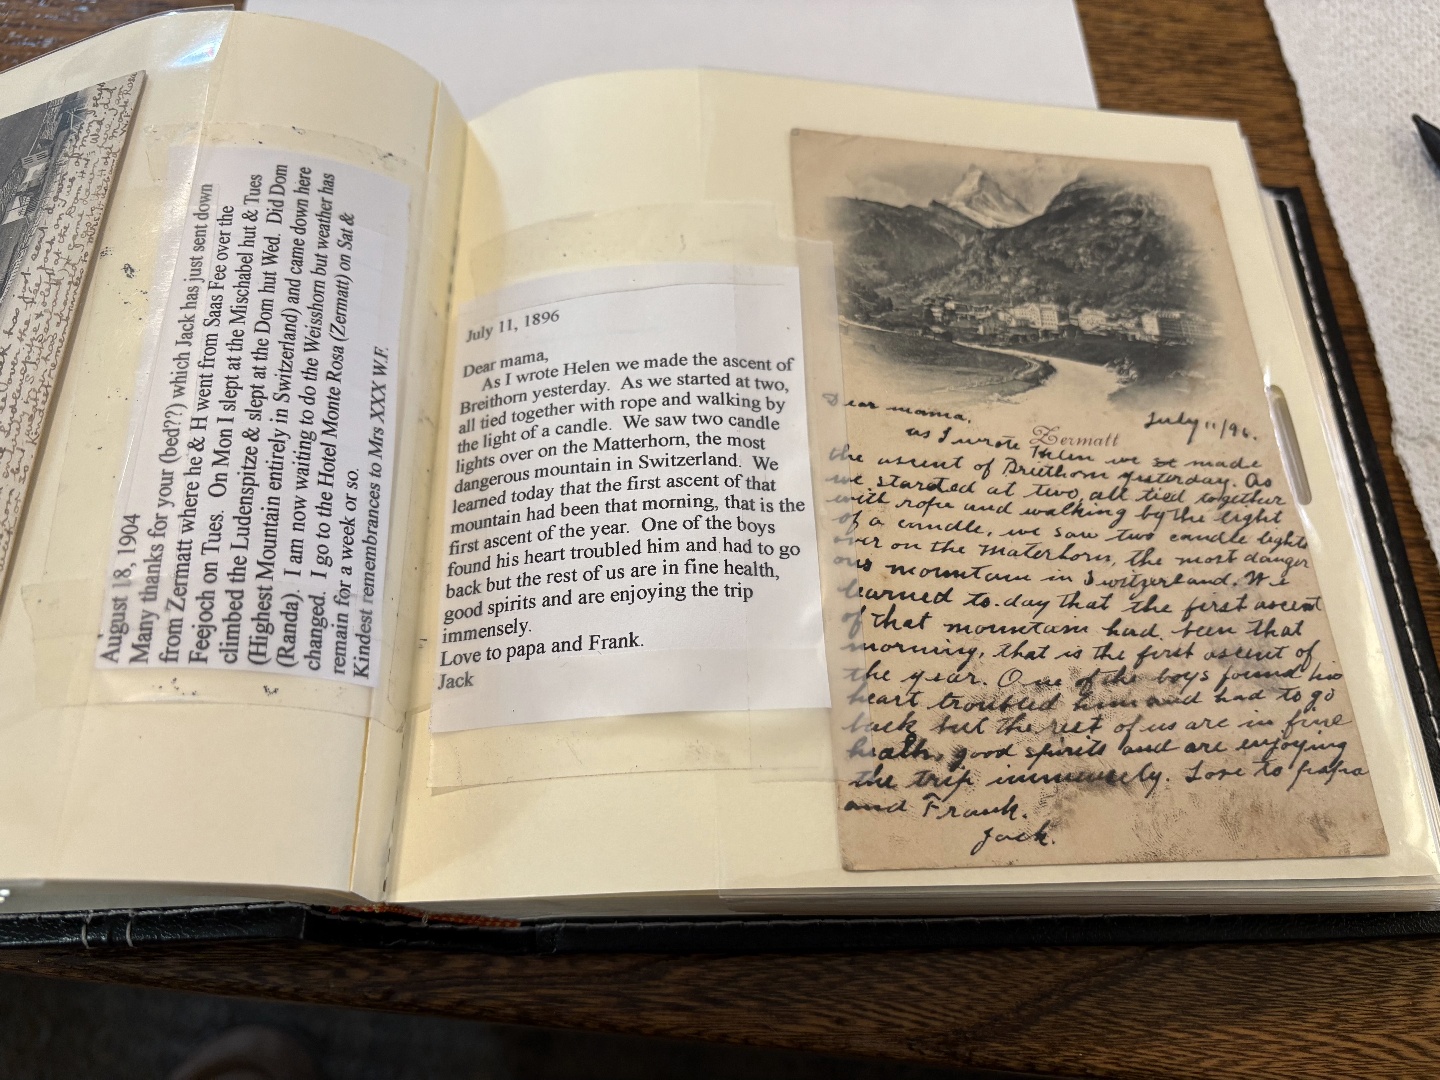 August 18, 1904
Many thanks for your (bed??) which Jack has just sent down
from Zermatt where he & H went from Saas Fee over the
Feejoch on Tues. On Mon I slept at the Mischabel hut & Tues
climbed the Ludenspitze & slept at the Dom hut Wed. Did Dom
(Highest Mountain entirely in Switzerland) and came down here
(Randa). I am now waiting to do the Weisshorn but weather has
changed. I go to the Hotel Monte Rosa (Zermatt) on Sat &
remain for a week or so.
Kindest remembrances to Mrs XXX W.F.
July 11, 1896
Dear mama,
As I wrote Helen we made the ascent of
Breithorn yesterday. As we started at two,
all tied together with rope and walking by
the light of a candle. We saw two candle
lights over on the Matterhorn, the most
dangerous mountain in Switzerland. We
learned today that the first ascent of that
mountain had been that morning, that is the
first ascent of the year. One of the boys
found his heart troubled him and had to go
back but the rest of us are in fine health,
good spirits and are enjoying the trip
immensely.
Love to papa and Frank.
Jack
Dear mama,
July 11/96.
Zermatt
as I wrote Helen we made
the ascent of Briethorn yesterday. As
we started at two, all tied together
with rope and walking by the light
of a candle, we saw two candle lights
over on the Materhorn, the most danger
ous mountain in Switzerland. We
learned to-day that the first ascent
of that mountain had been that
morning, that is the first ascent of
the year. One of the boys found his
heart troubled him and had to go
back but the rest of us are in fine
health, good spirits and are enjoying
the trip immensely. Love to papa
and Frank.
Jack.